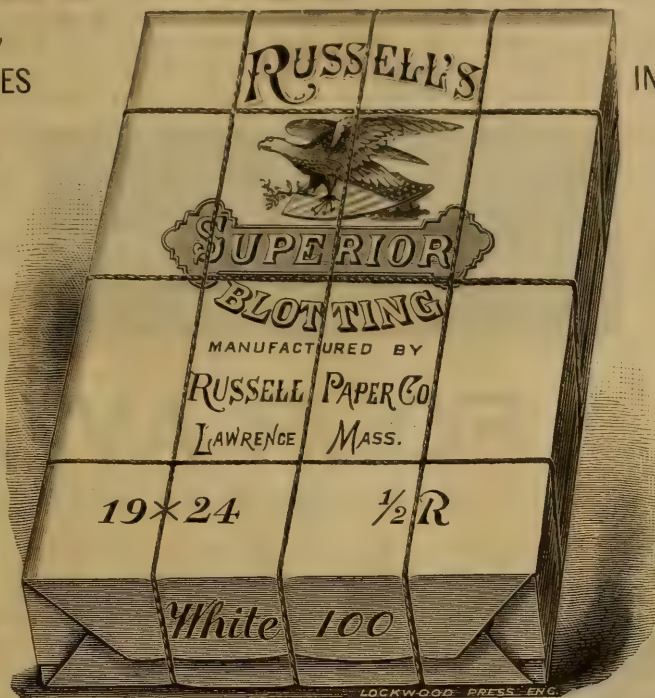 ES
IN
RUSSELL'S
SUPERIOR
BLOTTING
MANUFACTURED BY
RUSSELL PAPER CO
LAWRENCE MASS.
19×24 ½ R
White 100
LOCKWOOD PRESS ENG.